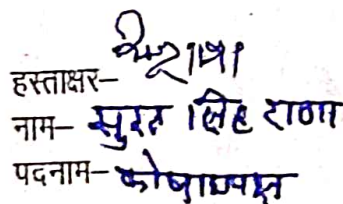 हस्ताक्षर–
नाम– सुरत सिंह राणा
पदनाम– कोषाध्यक्ष